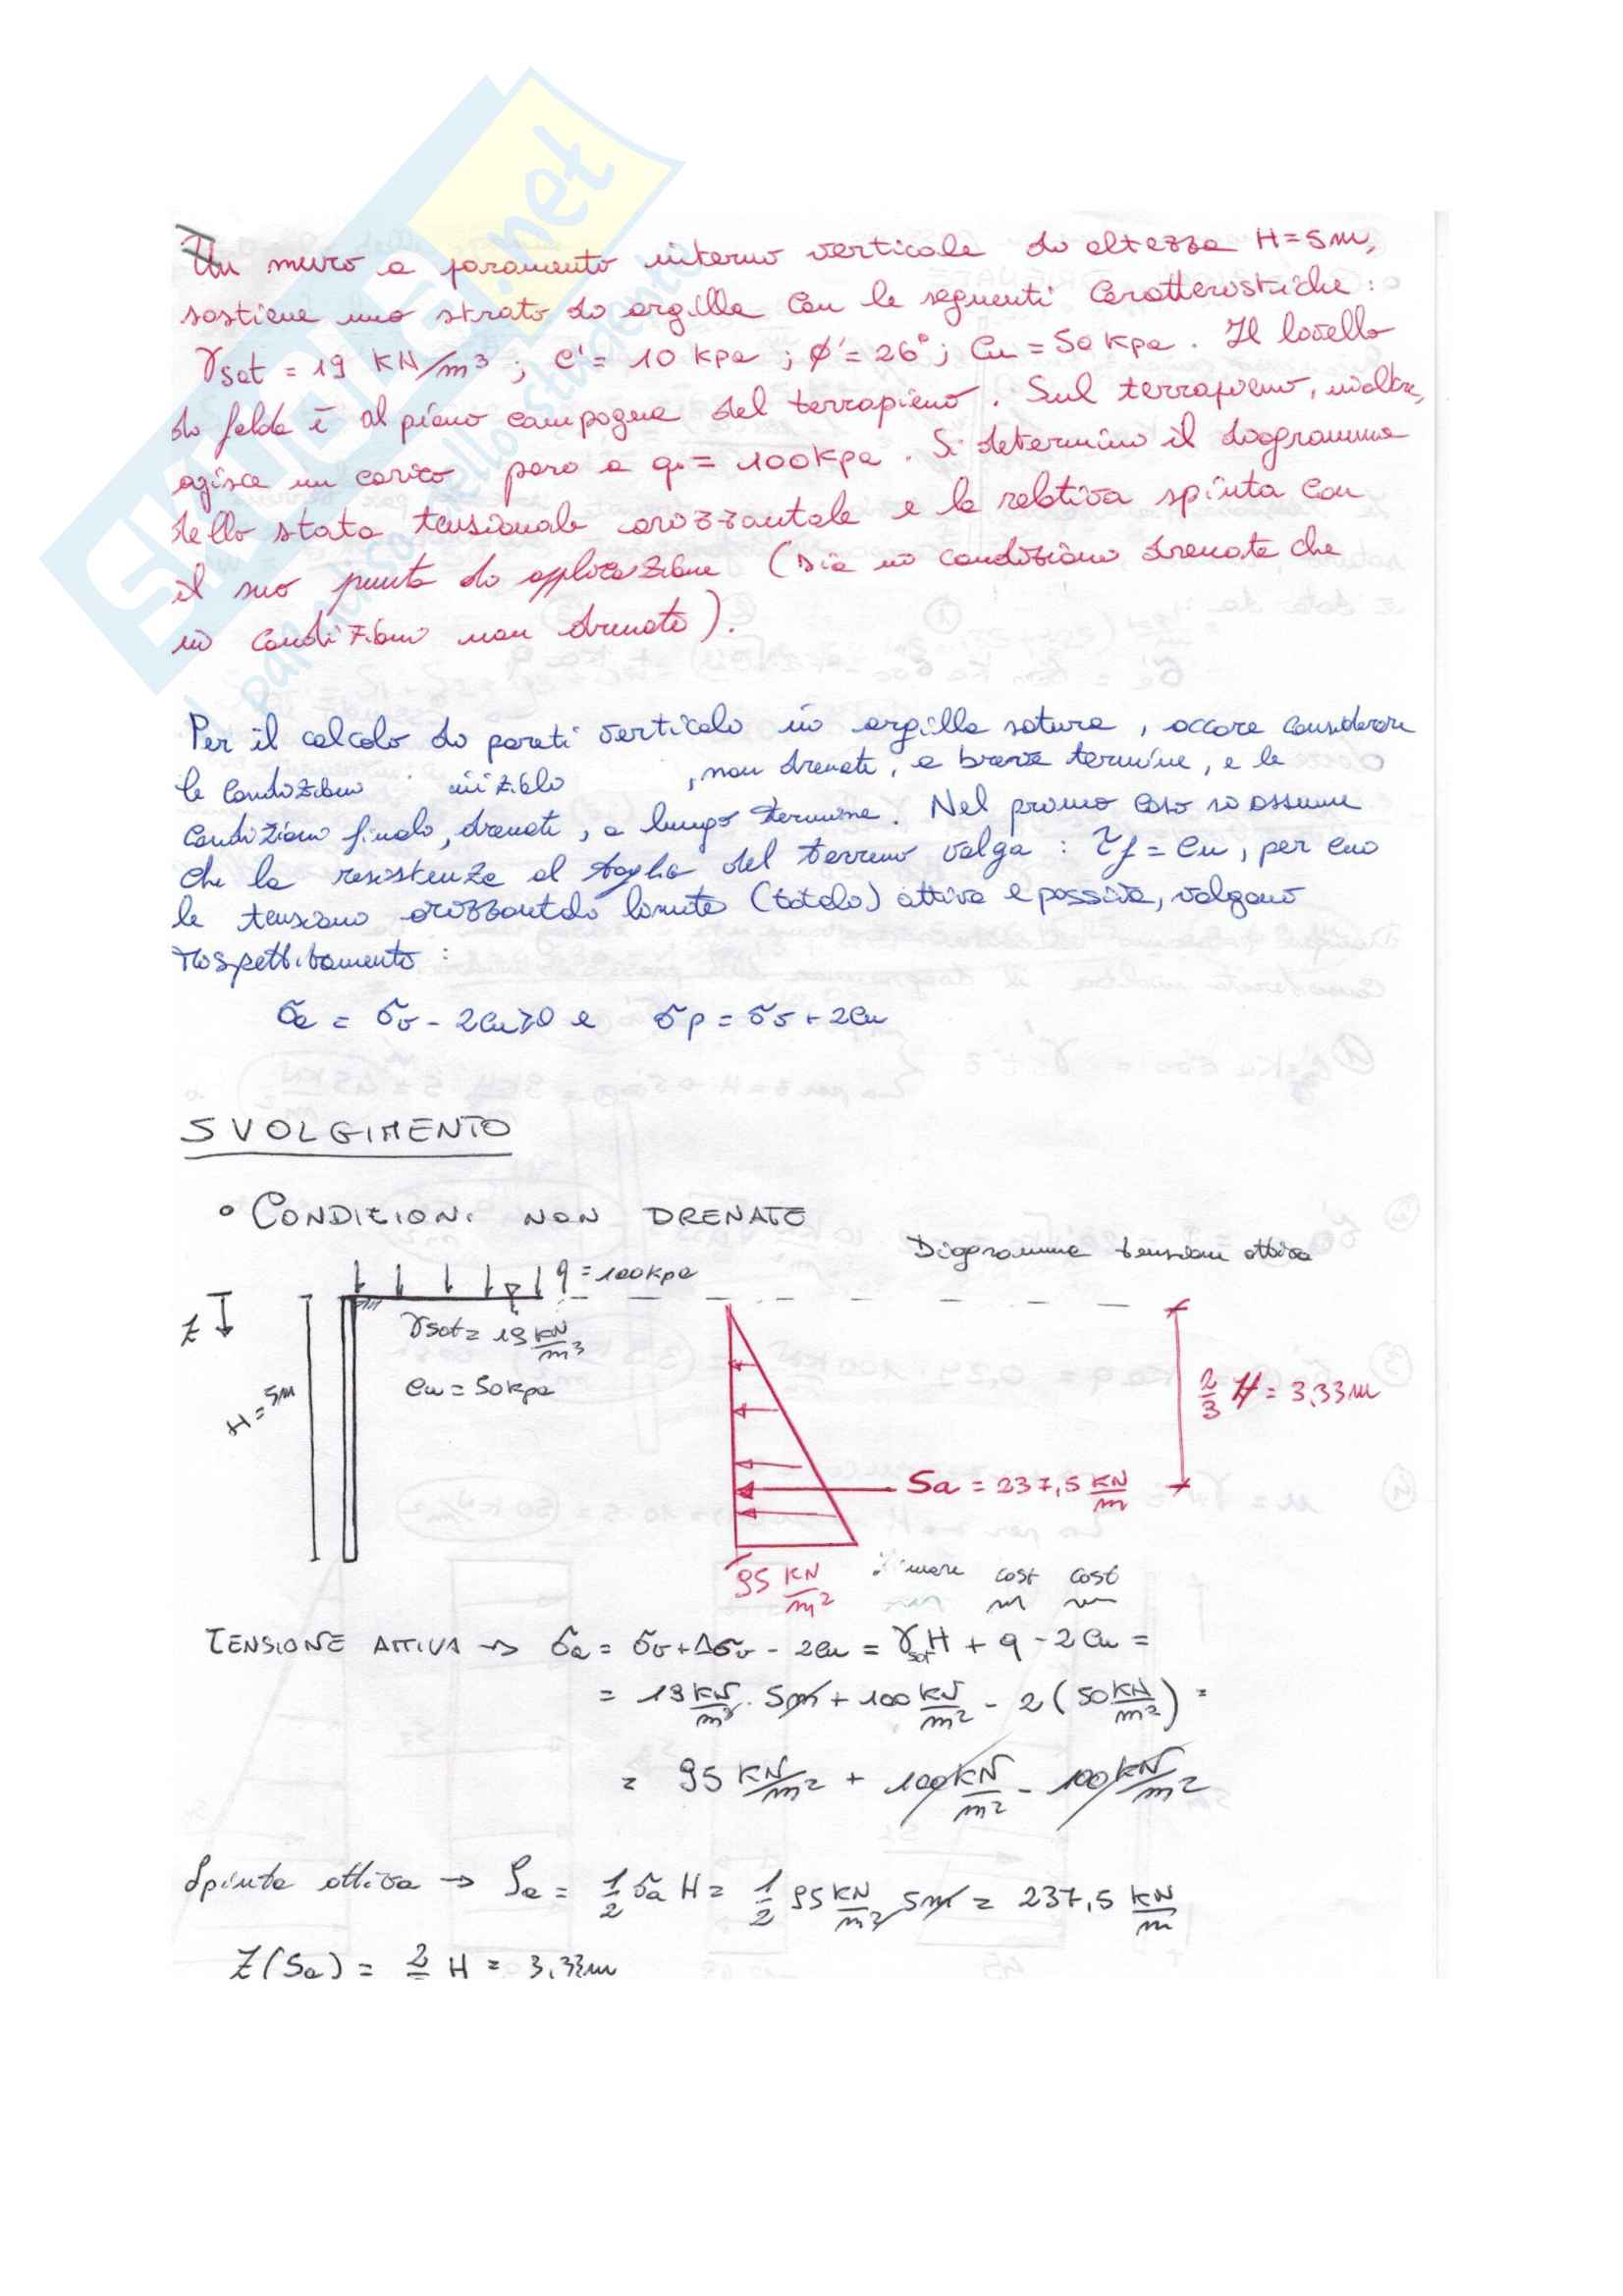 SKUOLA.net
il paradiso dello studente
Un muro a paramento interno verticale di altezza H=5m,
sostiene uno strato di argilla con le seguenti caratteristiche:
γsat = 19 KN/m³ ; c' = 10 kpa ; ϕ' = 26° ; Cu = 50 kpa . Il livello
di falda è al piano campagna del terrapieno . Sul terrapieno, inoltre,
agisce un carico pari a q = 100kpa . Si determini il diagramma
dello stato tensionale orizzontale e la relativa spinta con
il suo punto di applicazione (sia in condizioni drenate che
in condizioni non drenate).
Per il calcolo di pareti verticali in argilla satura , occore considerare
le condizioni iniziali , non drenate, a breve termine, e le
condizioni finali, drenate, a lungo termine. Nel primo caso si assume
che la resistenza al taglio del terreno valga : τf = Cu , per cui
le tensioni orizzontali limite (totali) attiva e passiva, valgono
rispettivamente :
σa = σv - 2Cu>0 e σp = σv + 2Cu
SVOLGIMENTO
° CONDIZIONI NON DRENATE
Diagramma tensioni attiva
q = 100kpa
Z
γsat = 19 KN/m³
Cu = 50kpa
H = 5m
2/3 H = 3,33m
Sa = 237,5 KN/m
95 KN/m²
lineare cost cost
TENSIONE ATTIVA → σa = σv + Δσv - 2Cu = γsat H + q - 2Cu =
= 19 KN/m³ · 5m + 100 KN/m² - 2 (50 KN/m²) =
= 95 KN/m² + 100 KN/m² - 100 KN/m²
Spinta attiva → Sa = 1/2 σa H = 1/2 95 KN/m² 5m = 237,5 KN/m
Z(Sa) = 2/ H = 3,33m